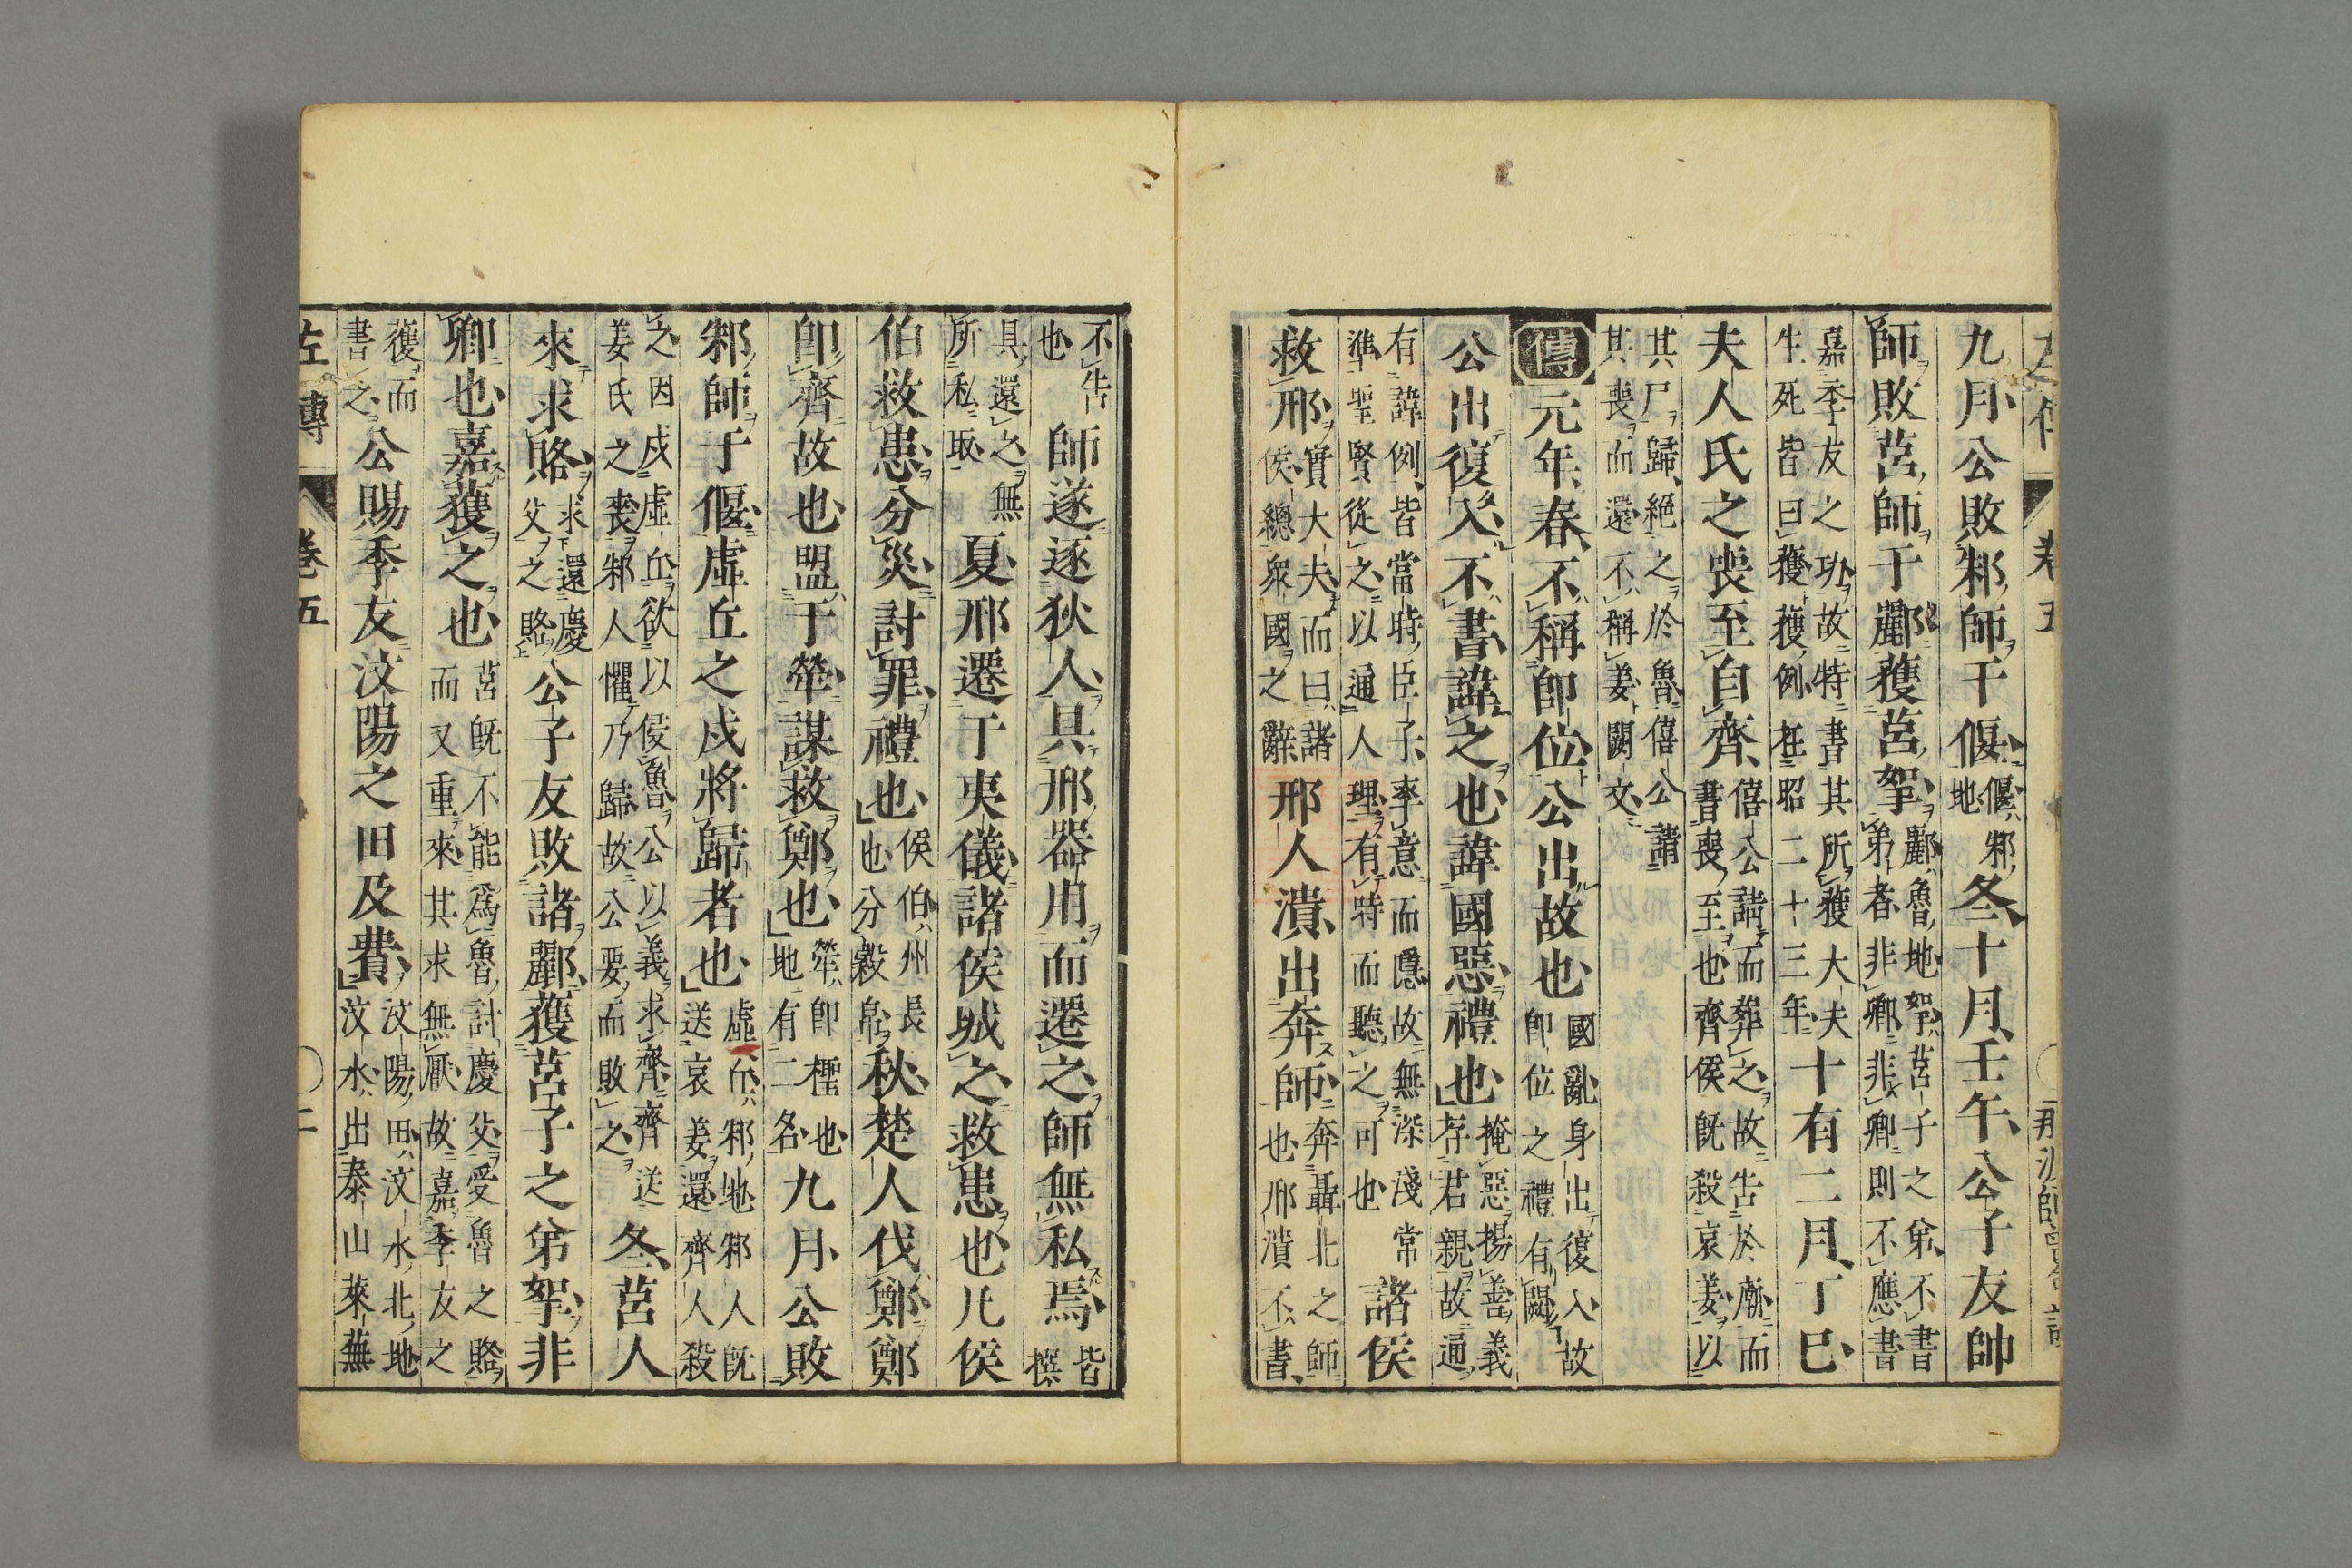 九月公敗邾師于偃偃邾地冬十月壬午公子友帥
師敗莒師于酈獲莒挐酈魯地挐莒子之弟不書弟者非卿非卿則不應書
嘉季友之功故特書其所獲大夫生死皆曰獲獲例在昭二十三年十有二月丁巳
夫人氏之喪至自齊僖公請而葬之故告於廟而書喪至也齊侯既殺哀姜以
其尸歸絕之於魯僖公請其喪而還不稱姜闕文
傳元年春不稱即位公出故也國亂身出復入故即位之禮有闕
公出復入不書諱之也諱國惡禮也掩惡揚善義存君親故通
有諱例皆當時臣子率意而隱故無深淺常準聖賢從之以通人理有特而聽之可也諸侯
救邢實大夫而曰諸侯總衆國之辭邢人潰出奔師奔聶北之師也邢潰不書
不告也師遂逐狄人具邢器用而遷之師無私焉皆撰
具還之無所私取夏邢遷于夷儀諸侯城之救患也凡侯
伯救患分災討罪禮也侯伯州長也分穀帛秋楚人伐鄭鄭
即齊故也盟于犖謀救鄭也犖即檉也地有二名九月公敗
邾師于偃虛丘之戍將歸者也虛丘邾地邾人既送哀姜還齊人殺
之因戍虛丘欲以侵魯公以義求齊齊送姜氏之喪邾人懼乃歸故公要而敗之冬莒人
來求賂求還慶父之賂公子友敗諸酈獲莒子之弟挐非
卿也嘉獲之也莒既不能爲魯討慶父受魯之賂而又重來其求無厭故嘉季友之
獲而書之公賜季友汶陽之田及費汶陽田汶水北地汶水出泰山萊蕪
左傳 卷五 二